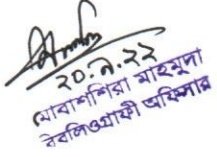 ২০.৯.২২
মোবাশশিরা মাহমুদা
বিবলিওগ্রাফী অফিসার